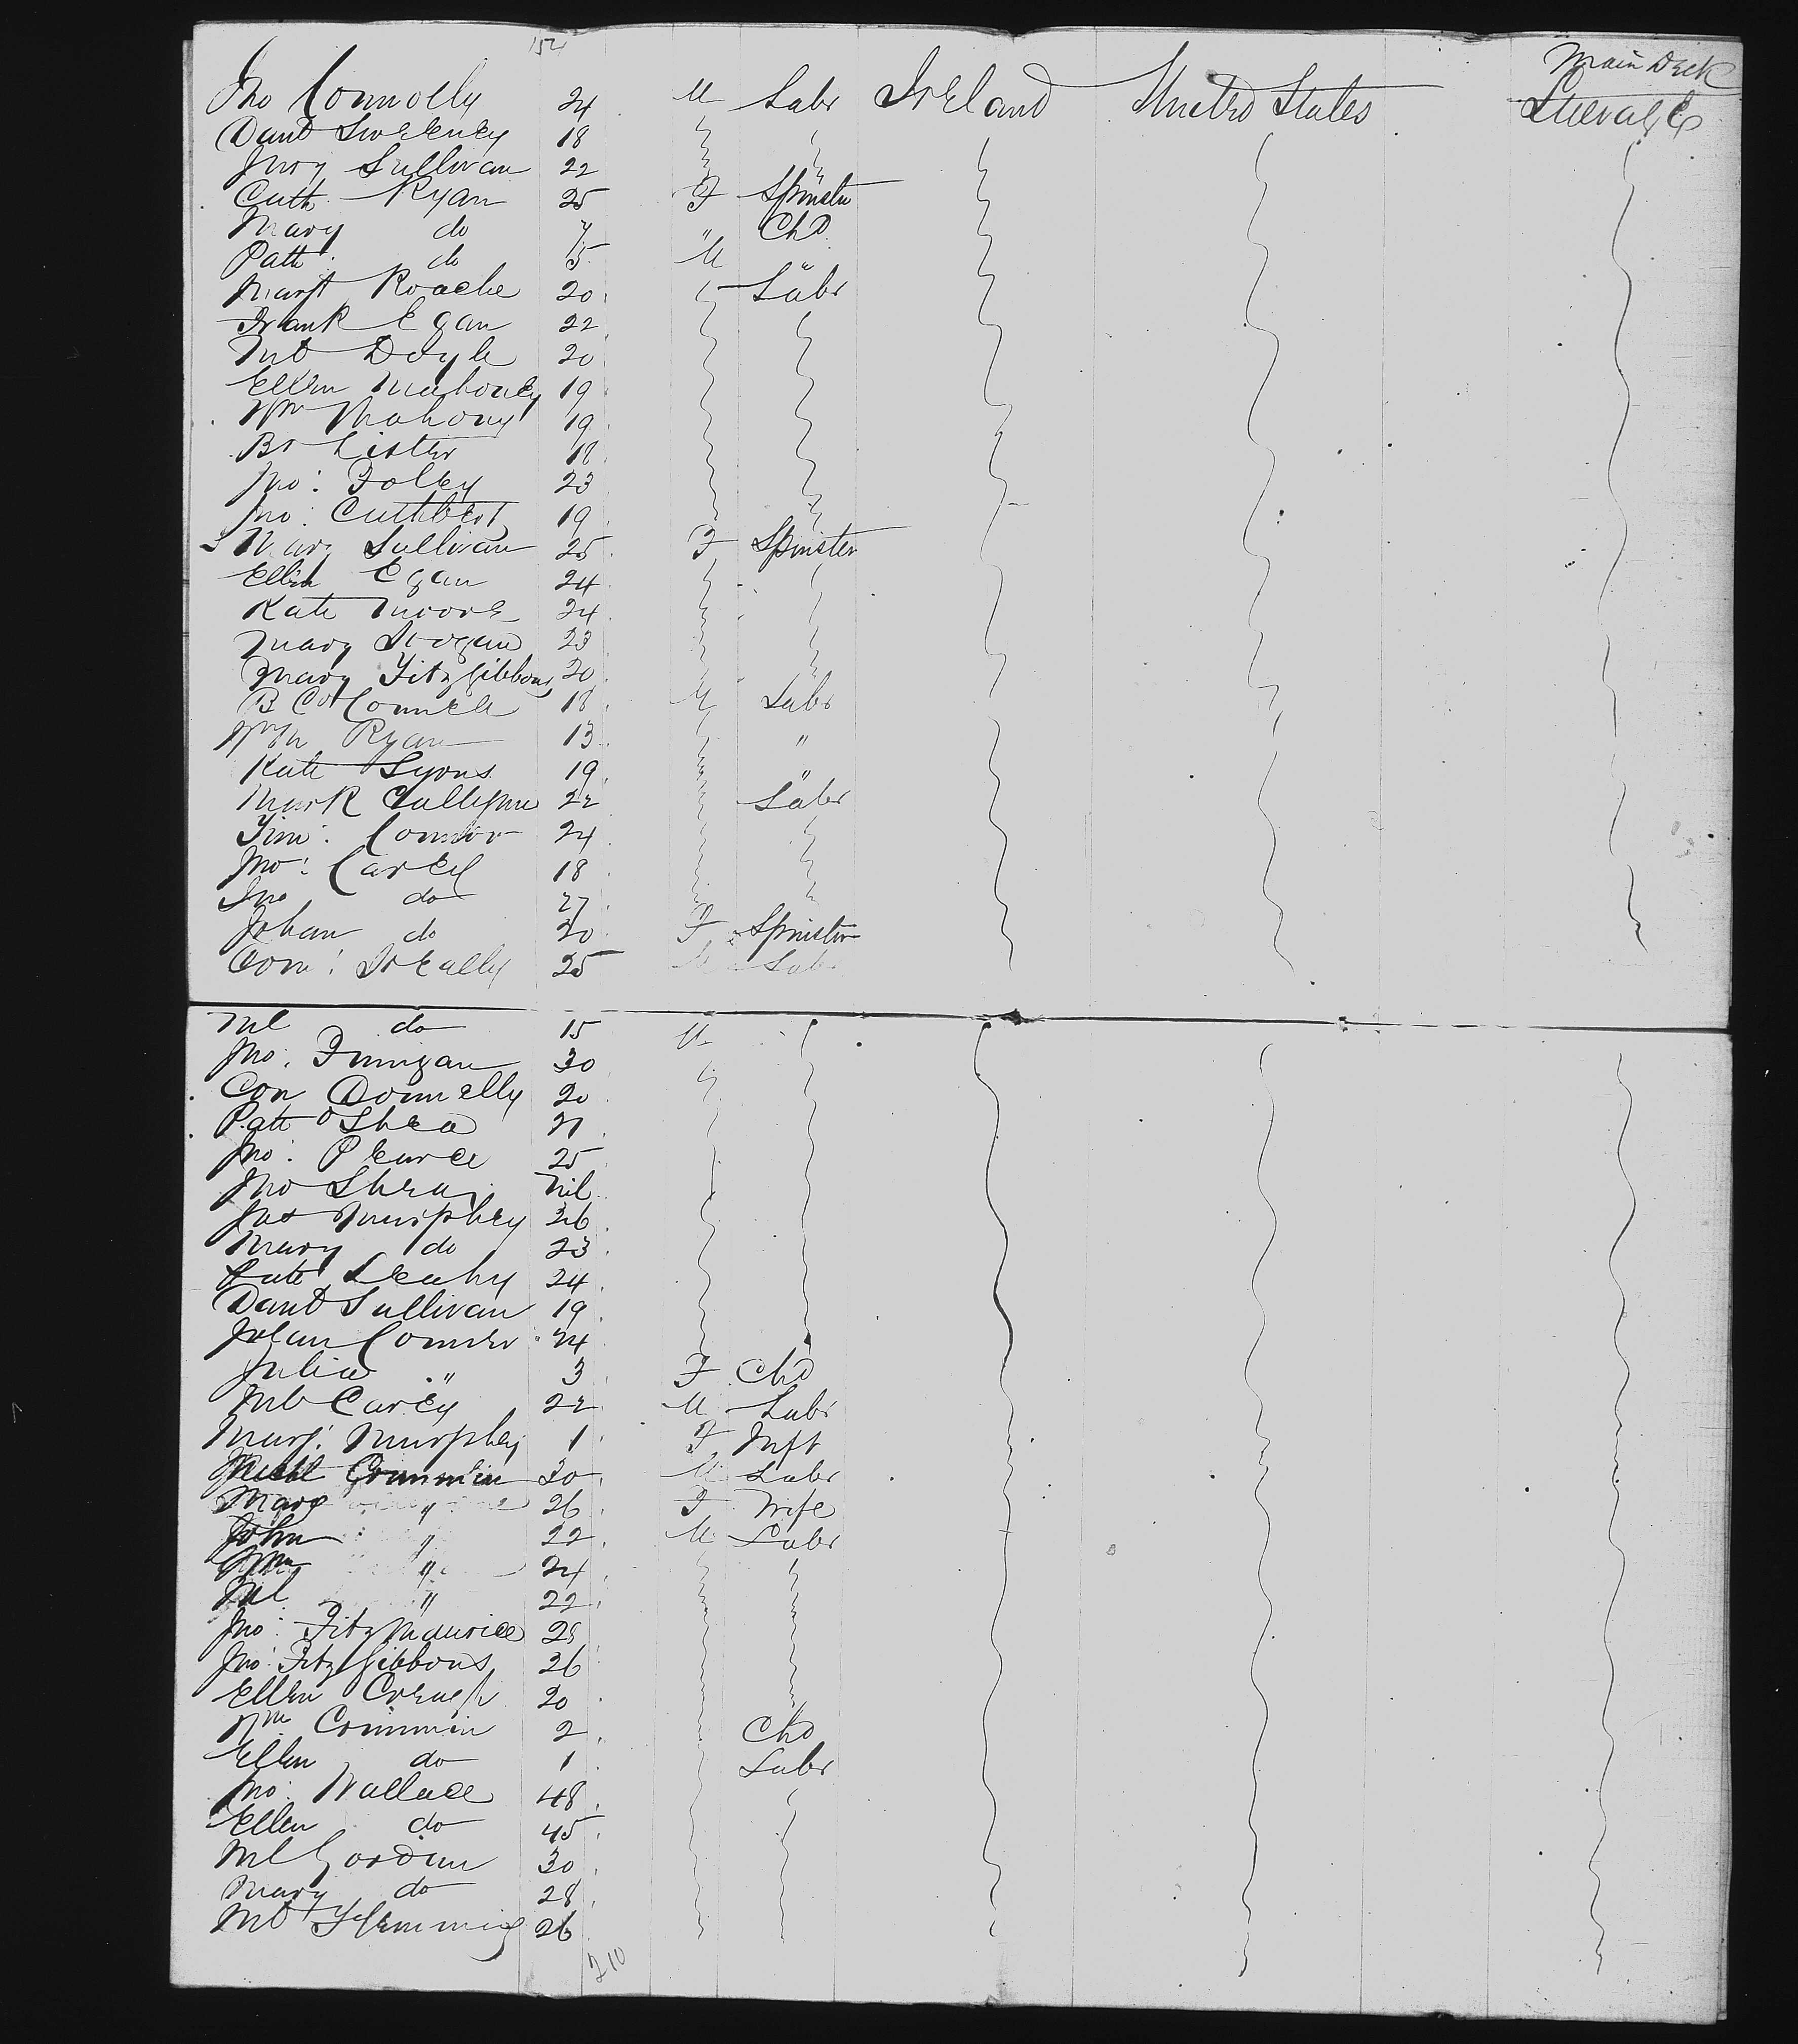 152
Main Deck
Jno Connolly 24 M Labr Ireland United States Steerage
Danl Sweeney 18
Jerry Sullivan 22
Cath Ryan 25 F Spinster
Mary do 7 " Chd
Patk do 5 M "
Margt Roache 20 Labr
Frank Egan 22
Ml Doyle 20
Ellen Mahoney 19
Wm Mahony 19
Lister 18
Jno: Foley 23
Jno: Cuthbert 19
Mary Sullivan 25 F Spinster
Ellen Egan 24
Kate Moore 24
Mary 23
Mary Fitzgibbons 20
B O'Connell 18 M Labr
Wm Ryan 13 "
Kate Lyons 19 "
Mark 22 Labr
Tim: Connor 24
Jno: Carey 18
Jno do 27
Johan do 20 F Spinster
Corn: 25 M Labr
Ml do 15 M
Jno: Finigan 30
Con Donnelly 20
Patk O'Shea 21
Jno: Pearce 25
Jno Shea
Jas Murphey 26
Mary do 23
Leahy 24
Danl Sullivan 19
Johan Conner 24
Julia " 3 F Chd
Ml Carey 22 M Labr
Marg: Murphey 1 F Inft
Michl Crimmin 30 M Labr
Marg " 26 F Wife
John " 22 M Labr
Wm " 24
Ml " 22
Jno: Fitzmaurice 28
Jno: Fitzgibbons 26
Ellen Creagh 20
Wm Crimmin 2 Chd
Ellen do 1 Labr
Jno: Wallace 48
Ellen do 45
Ml 30
Mary do 28
Ml Flemming 26
210